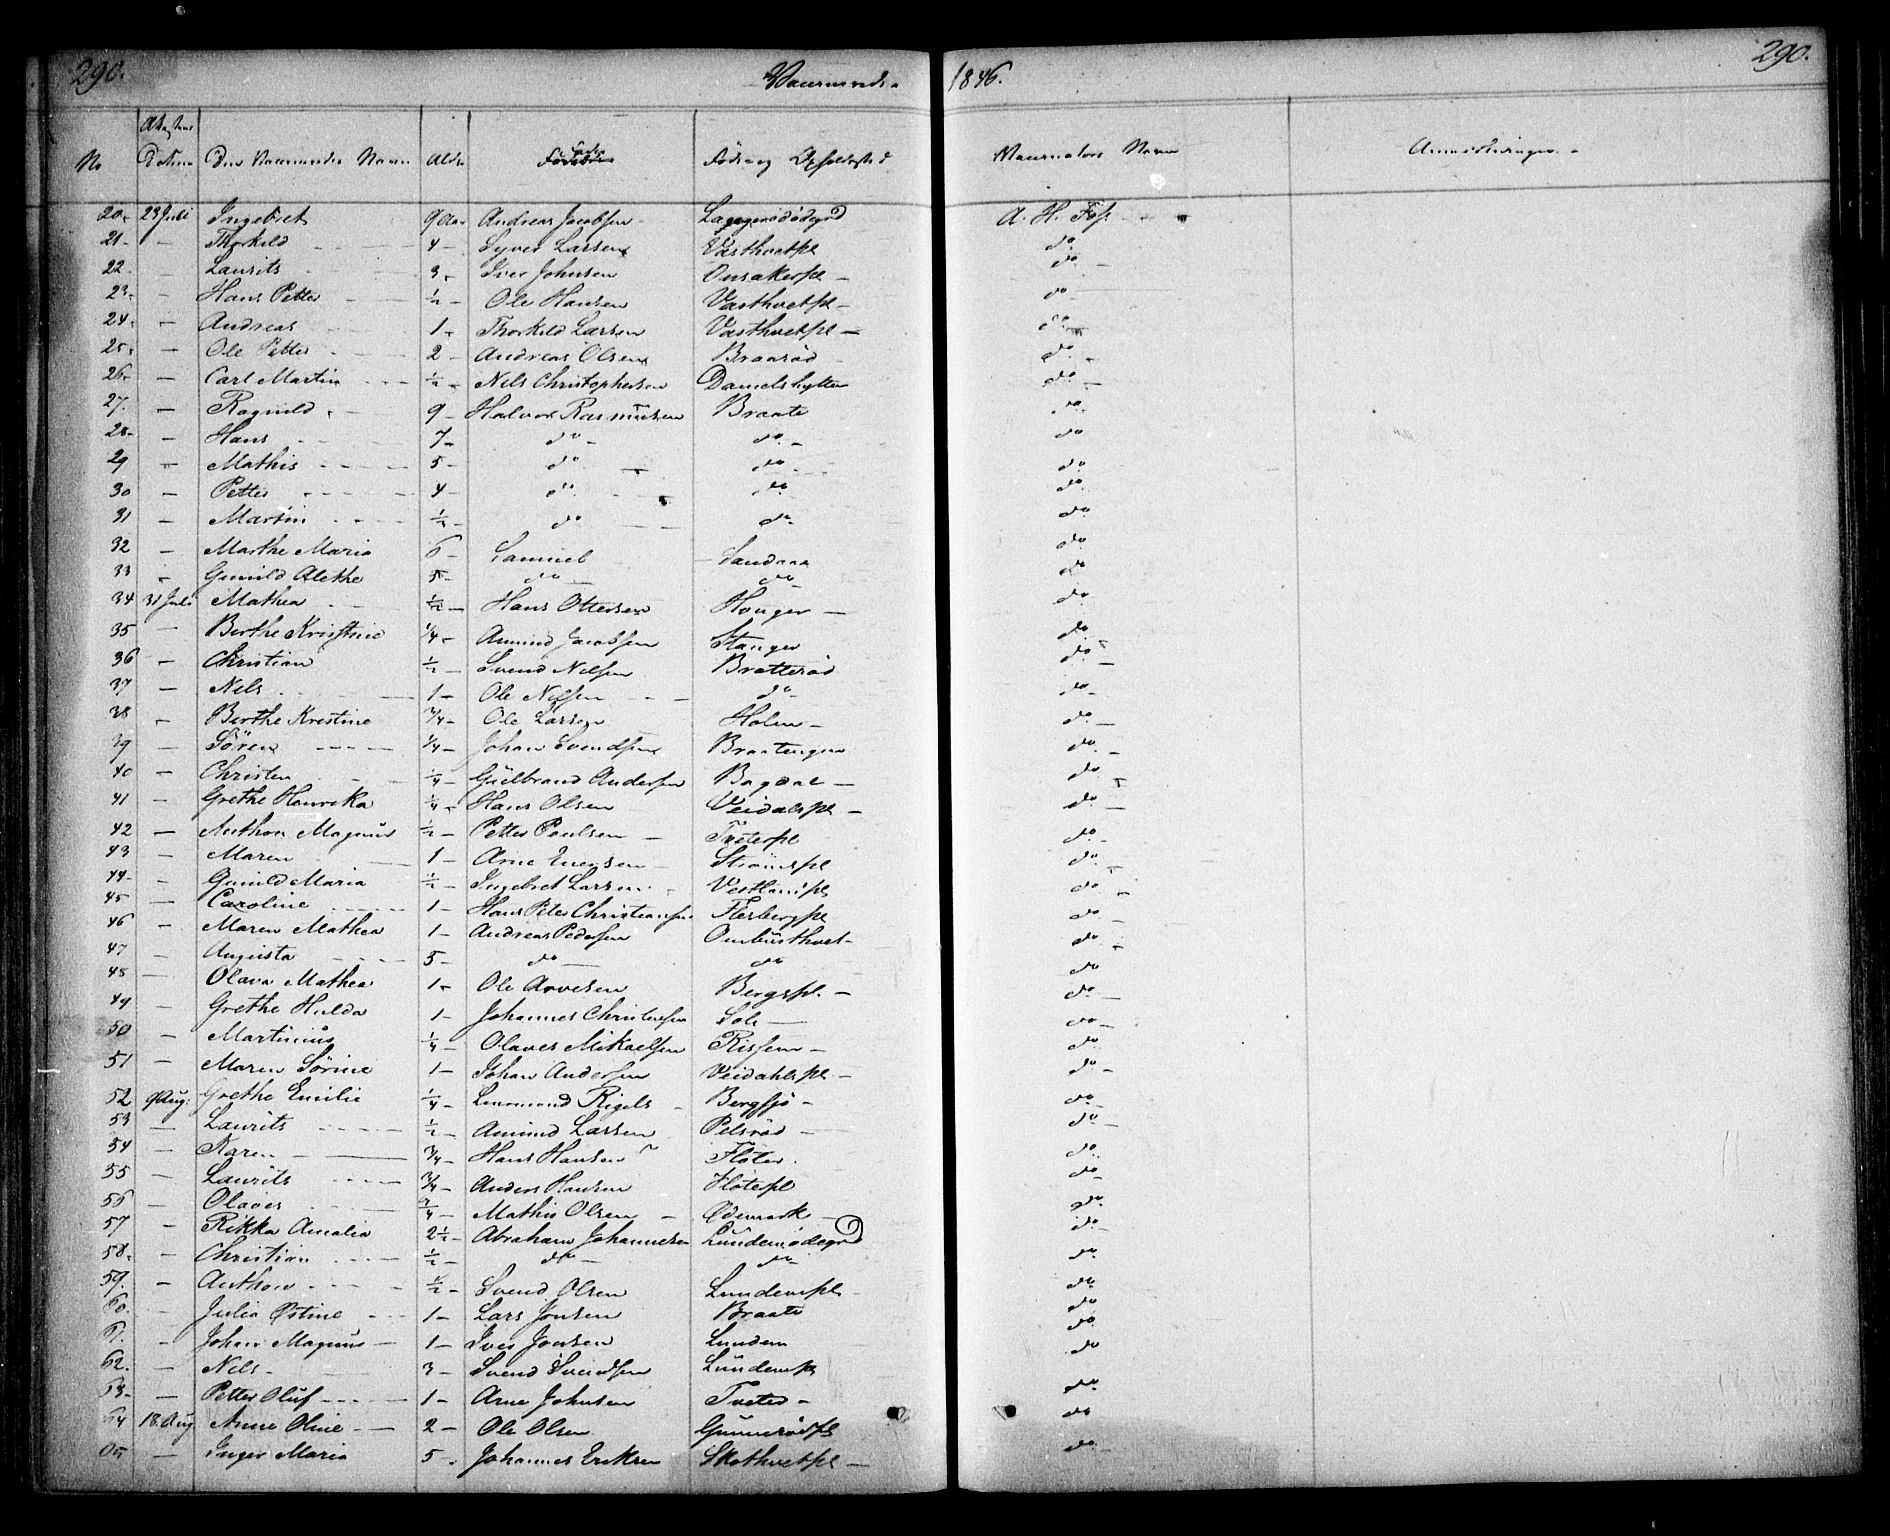 290. Vaccinerede 1846. 290.
Attestens
No Datum Den Vaccineredes Navn Alder Fader Føde og Opholdssted Vaccinators Navn Anmærkninger
20 23 Juli Ingebret 9 Aar Andreas Jacobsen A. H. Fos.
21 - Thorkild 4 - Syver Larsen Vasthvetpl do
22 - Laurits 3 - Iver Johnsen Onsakerpl - do
23 - Hans Petter ½ - Ole Hansen Vasthvetpl - do
24 - Andreas 1 - Thorkild Larsen Vasthvetpl - do
25 - Ole Petter 2 - Andreas Olsen Braarød do
26 - Carl Martin ½ - Nils Christophersen Danielshytten do
27 - Ragnild 9 - Halvor Rasmusen Braate do
28 - Hans 7 - do do do
29 - Mathis 5 - do do do
30 - Petter 4 - do do do
31 - Martin ½ - do do do
32 - Marthe Maria 6 - Samuel Sandaaa do
33 - Gunild Alethe 5 - do do do
34 31 Juli Mathea ½ - Hans Ottersen Honger - do
35 - Berthe Kristine ¼ - Amund Jacobsen Stanger do
36 - Christian ½ - Svend Nilsen Bratterød do
37 - Nils 1 - Ole Nilsen do do
38 - Berthe Kristine ¾ - Ole Larsen Holm - do
39 - Søren ¼ - Johan Svendsen Braatengen do
40 - Christen ¼ - Gulbrand Andersen Bogdal - do
41 - Grethe Henrika ¼ - Hans Olsen Veidalspl - do
42 - Anthon Magnus ½ - Petter Paulsen Tveterpl do
43 - Maren 1 - Arne Evensen Strömspl do
44 - Gunild Maria ½ - Ingebret Larsen do
45 - Caroline 1 - Hans Peter Christiansen Flesbergpl do
46 - Maren Mathea 1 - Andreas Pedersen Ombusthvet - do
47 - Augusta 5 - do do do
48 - Olava Mathea 1 - Ole Arvesen Bergspl. - do
49 - Grethe Hulda 1 - Johannes Christensen Sole do
50 - Martinius ¼ - Olaves Mikaelsen Rissem - do
51 - Maren Sørine 1 - Johan Andersen Veidahlspl - do
52 9 Aug: Grethe Emilie ¼ - Rigels Bergsjø - do
53 - Laurits ½ - Amund Larsen Pelsrød do
54 - Karen ¾ - Hans Hansen Fløter do
55 - Laurits ¾ - Anders Hansen Fløtepl do
56 - Olaves ¾ - Mathis Olsen Ødemark do
57 - Rikka Amalia 2½ - Abraham Johannesen Lundemødegrd do
58 - Christian ½ - do do do
59 - Anthon ½ - Svend Olsen Lundempl do
60 - Julia Østine 1 - Lars Jonsen Braate do
61 - Johan Magnus 1 - Iver Jonsen Lundem do
62 - Nils 3 - Svend Svendsen Lundempl do
63 - Petter Oluf 1 - Arne Johnsen Tveted - do
64 18 Aug Anne Oline 2 - Ole Olsen Gunnerødpl do
65 - Inger Maria 5 - Johannes Eriksen Skothvetpl - do